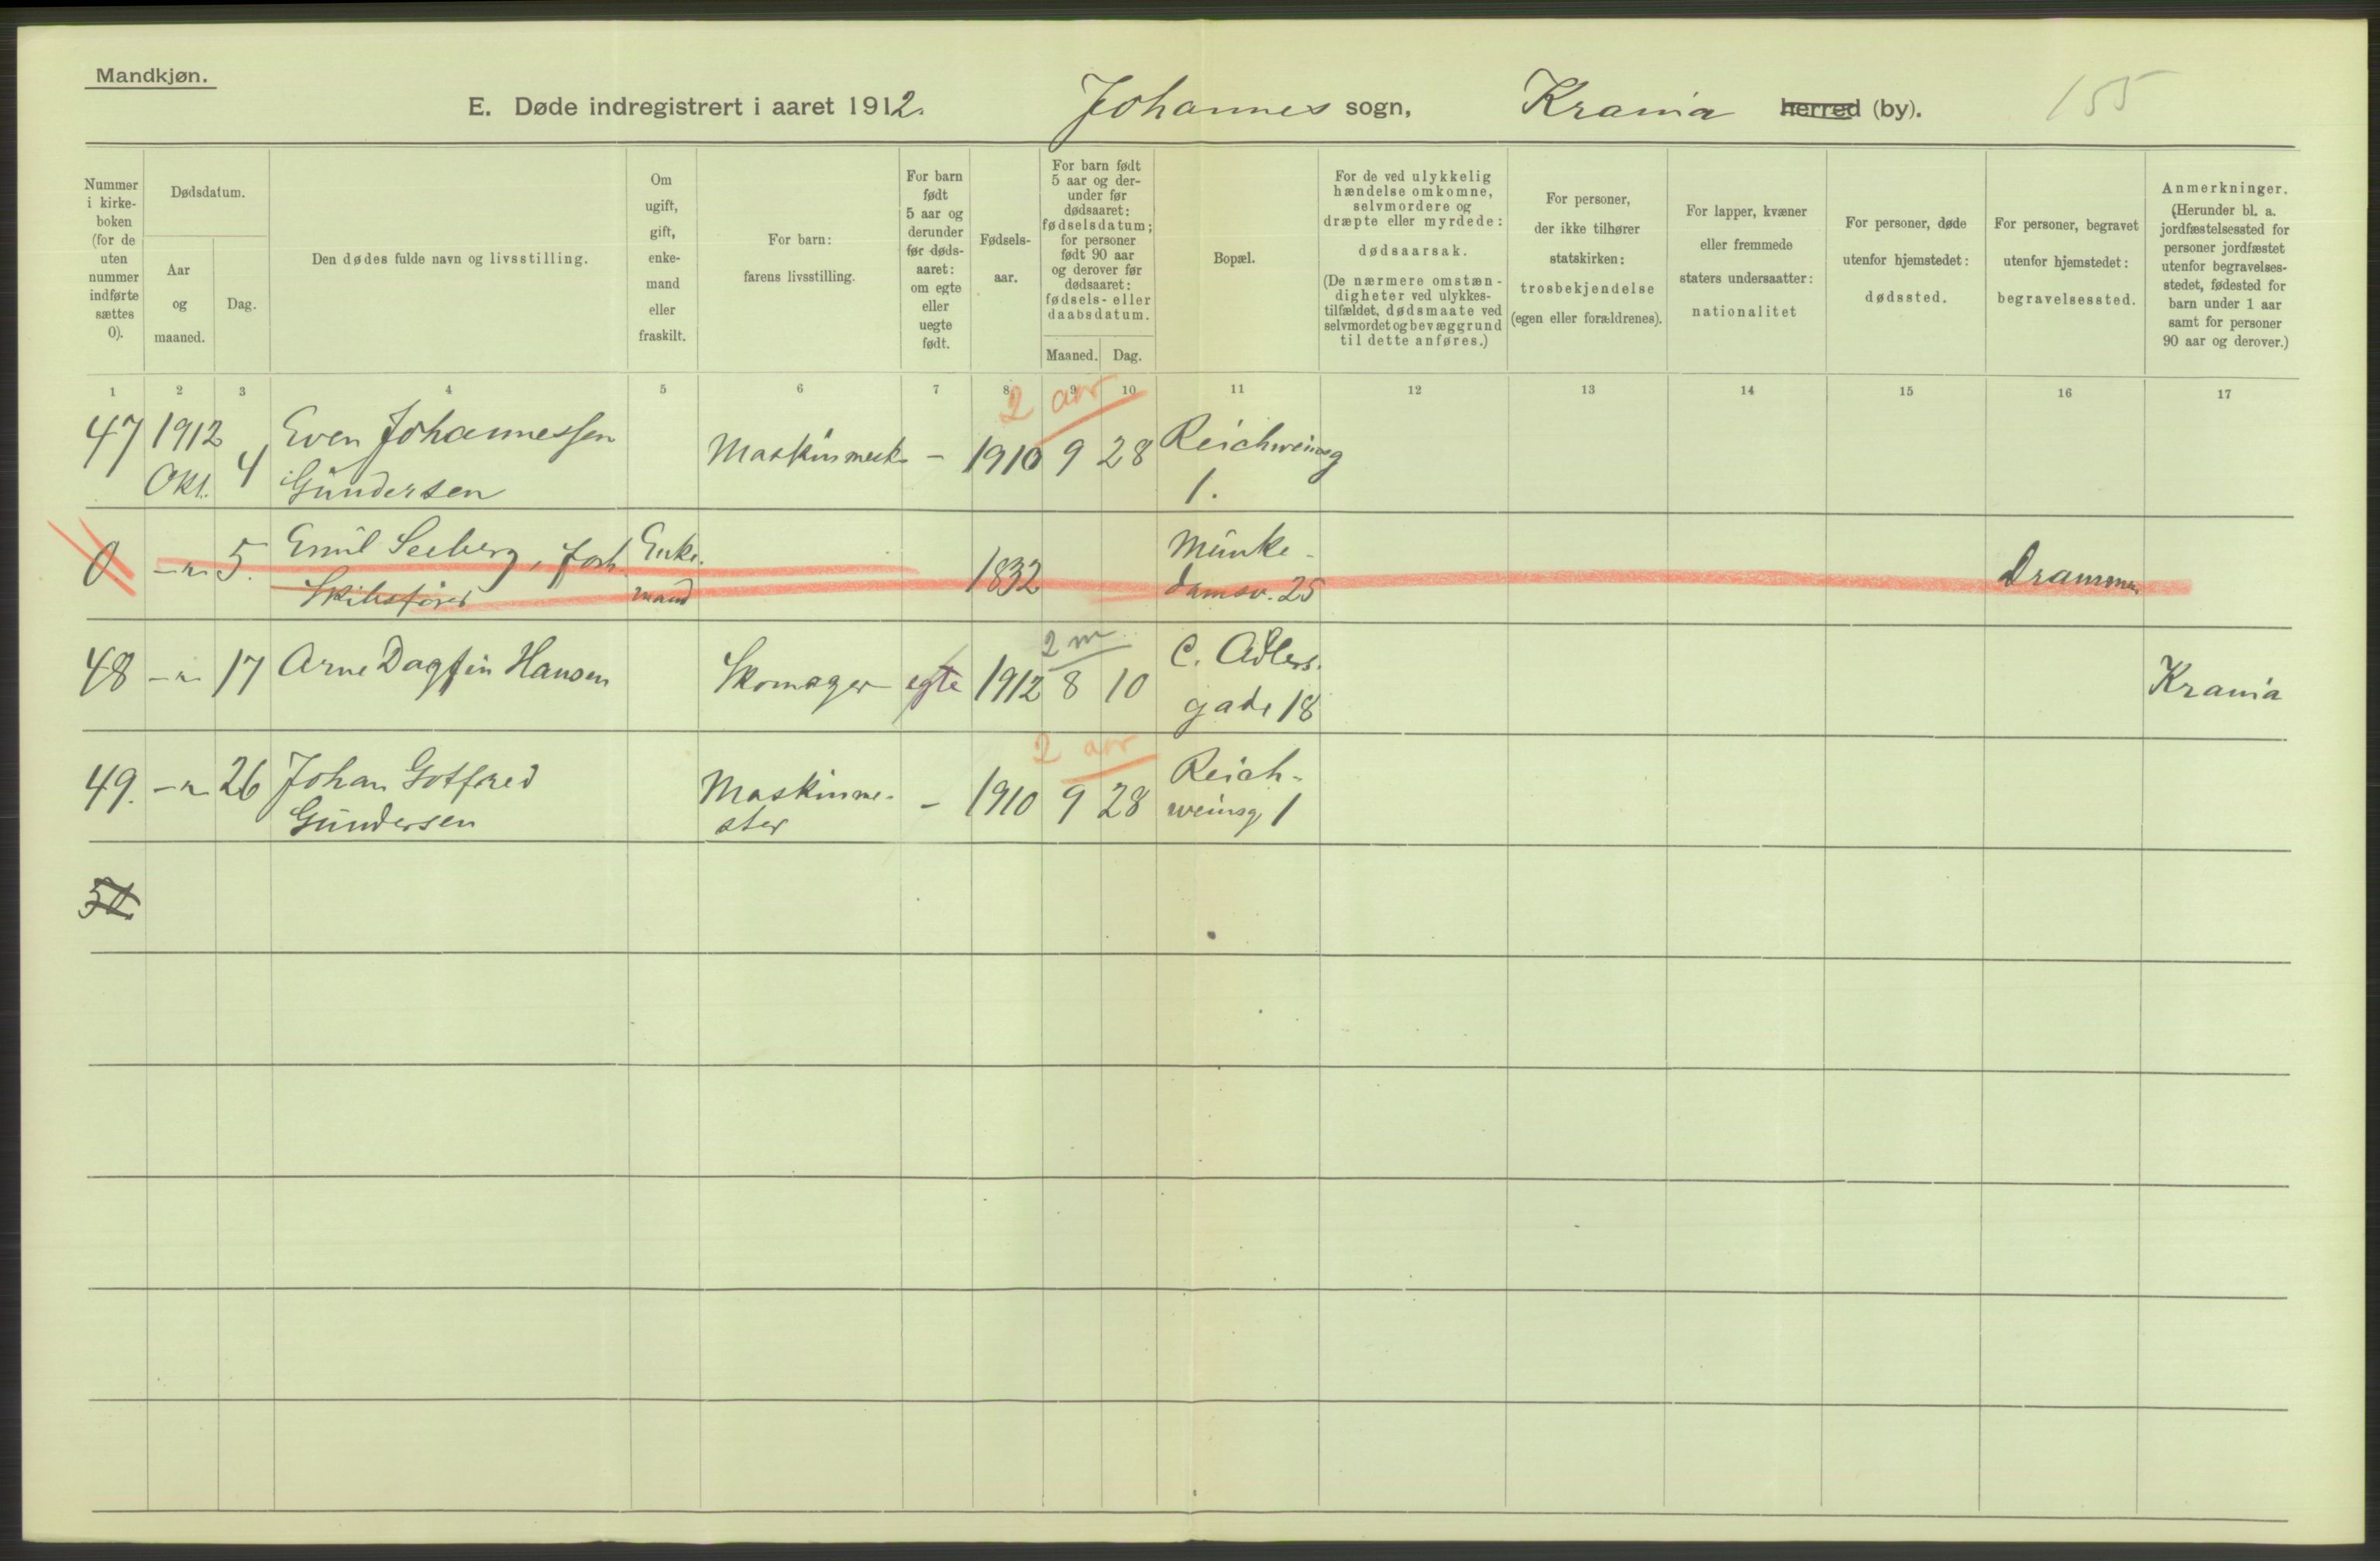 Mandkjøn.
E. Døde indregistrert i aaret 1912. Johannes sogn, Krania herred (by). 155
Nummer i kirke-boken (for de uten nummer indførte sættes 0).
Dødsdatum.
Aar og maaned.
Dag.
Den dødes fulde navn og livsstilling.
Om ugift, gift, enke-mand eller fraskilt.
For barn: farens livsstilling.
For barn født 5 aar og derunder før døds-aaret: om egte eller uegte født.
Fødsels-aar.
For barn født 5 aar og der-under før dødsaaret: fødselsdatum; for personer født 90 aar og derover før dødsaaret: fødsels- eller daabsdatum.
Maaned. Dag.
Bopæl.
For de ved ulykkelig hændelse omkomne, selvmordere og dræpte eller myrdede: dødsaarsak. (De nærmere omstæn-digheter ved ulykkes-tilfældet, dødsmaate ved selvmordet og bevæggrund til dette anføres.)
For personer, der ikke tilhører statskirken: trosbekjendelse (egen eller forældrenes).
For lapper, kvæner eller fremmede staters undersaatter: nationalitet
For personer, døde utenfor hjemstedet: dødssted.
For personer, begravet utenfor hjemstedet: begravelsessted.
Anmerkninger. (Herunder bl. a. jordfæstelsessted for personer jordfæstet utenfor begravelses-stedet, fødested for barn under 1 aar samt for personer 90 aar og derover.)
1 2 3 4 5 6 7 8 9 10 11 12 13 14 15 16 17
2 aar
47 1912 Even Johannessen Reichweinsg
Okt. 4 Gundersen Maskinmest. - 1910 9 28 1.
0 -"- 5. Emil Seeberg, forh. Enke- 1832 Munke- Drammen
Skibsfører mand damsv. 25
2 m
48 -"- 17 Arne Dagfin Hansen Skomager egte 1912 8 10 C. Adlers. Krania
gade 18
2 aar
49. -"- 26 Johan Gotfred Maskinme- - 1910 9 28 Reich-
Gundersen ster weinsg 1
50.